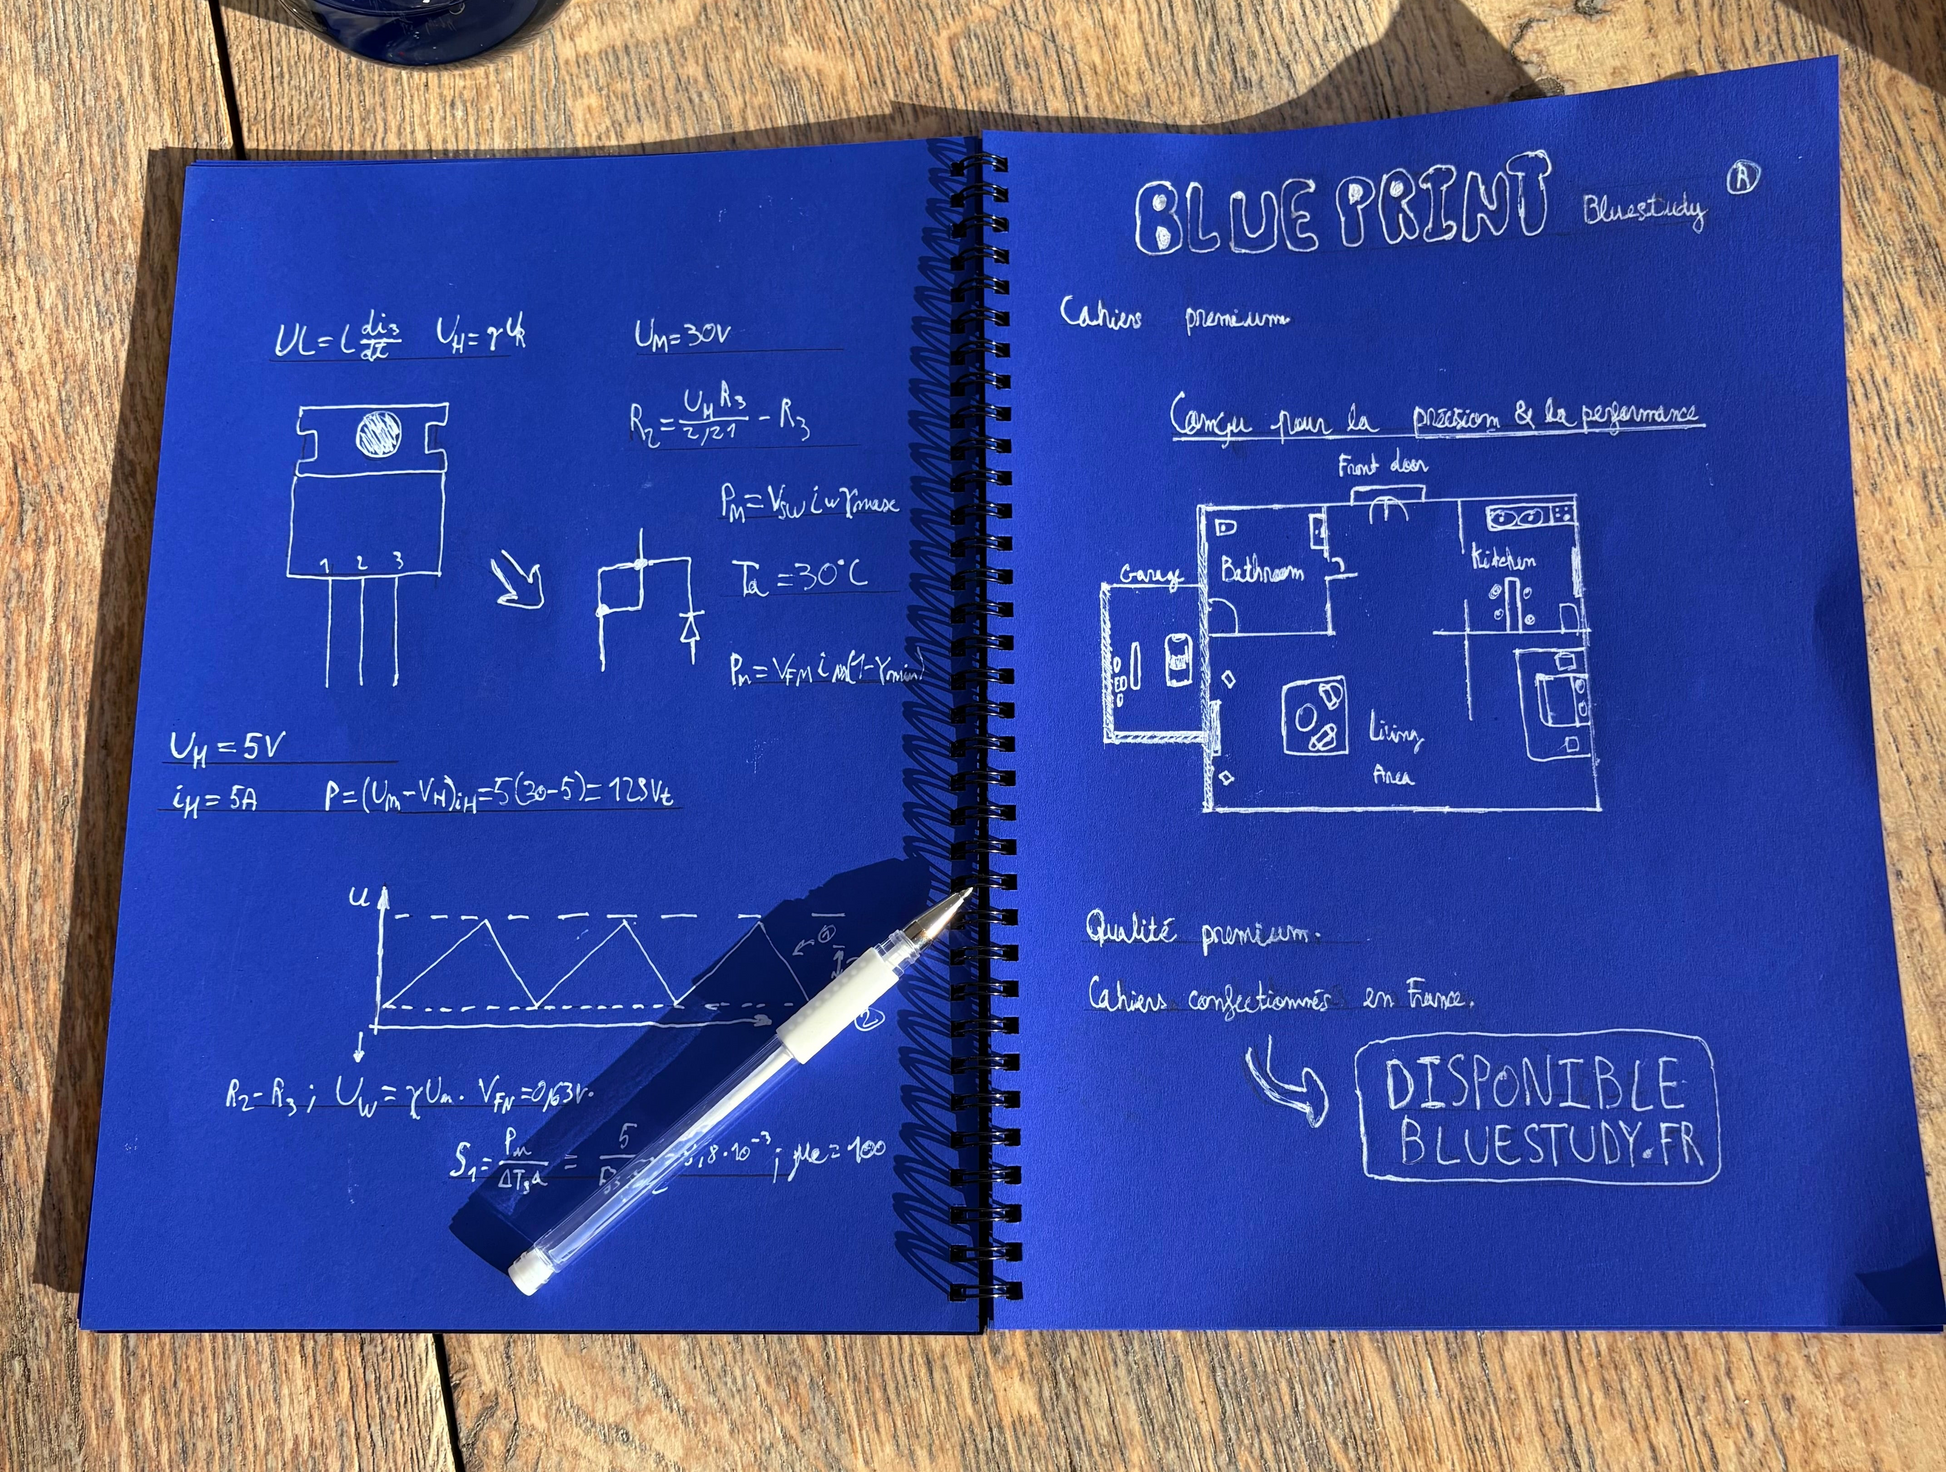 UL = L di3/dt  UH = γUR
UM = 30V
R2 = UH R3 / 2,21 - R3
PM = VSW iW γmax
1 2 3
Ta = 30°C
Pn = VFM iM(1-γmin)
UH = 5V
iH = 5A  P = (Um - VH)iH = 5(30-5) = 125Vt
u
2
R2 - R3 ; UW = γUm. VFN = 0,63V.
S1 = Pn / ΔT3a = 5 ,8·10⁻³ ; μe = 100
BLUE PRINT Bluestudy A
Cahiers premium
Conçu pour la précision & la performance
Front door
Garage
Bathroom
Kitchen
Living
Area
Qualité premium.
Cahiers confectionnés en France.
DISPONIBLE
BLUESTUDY.FR